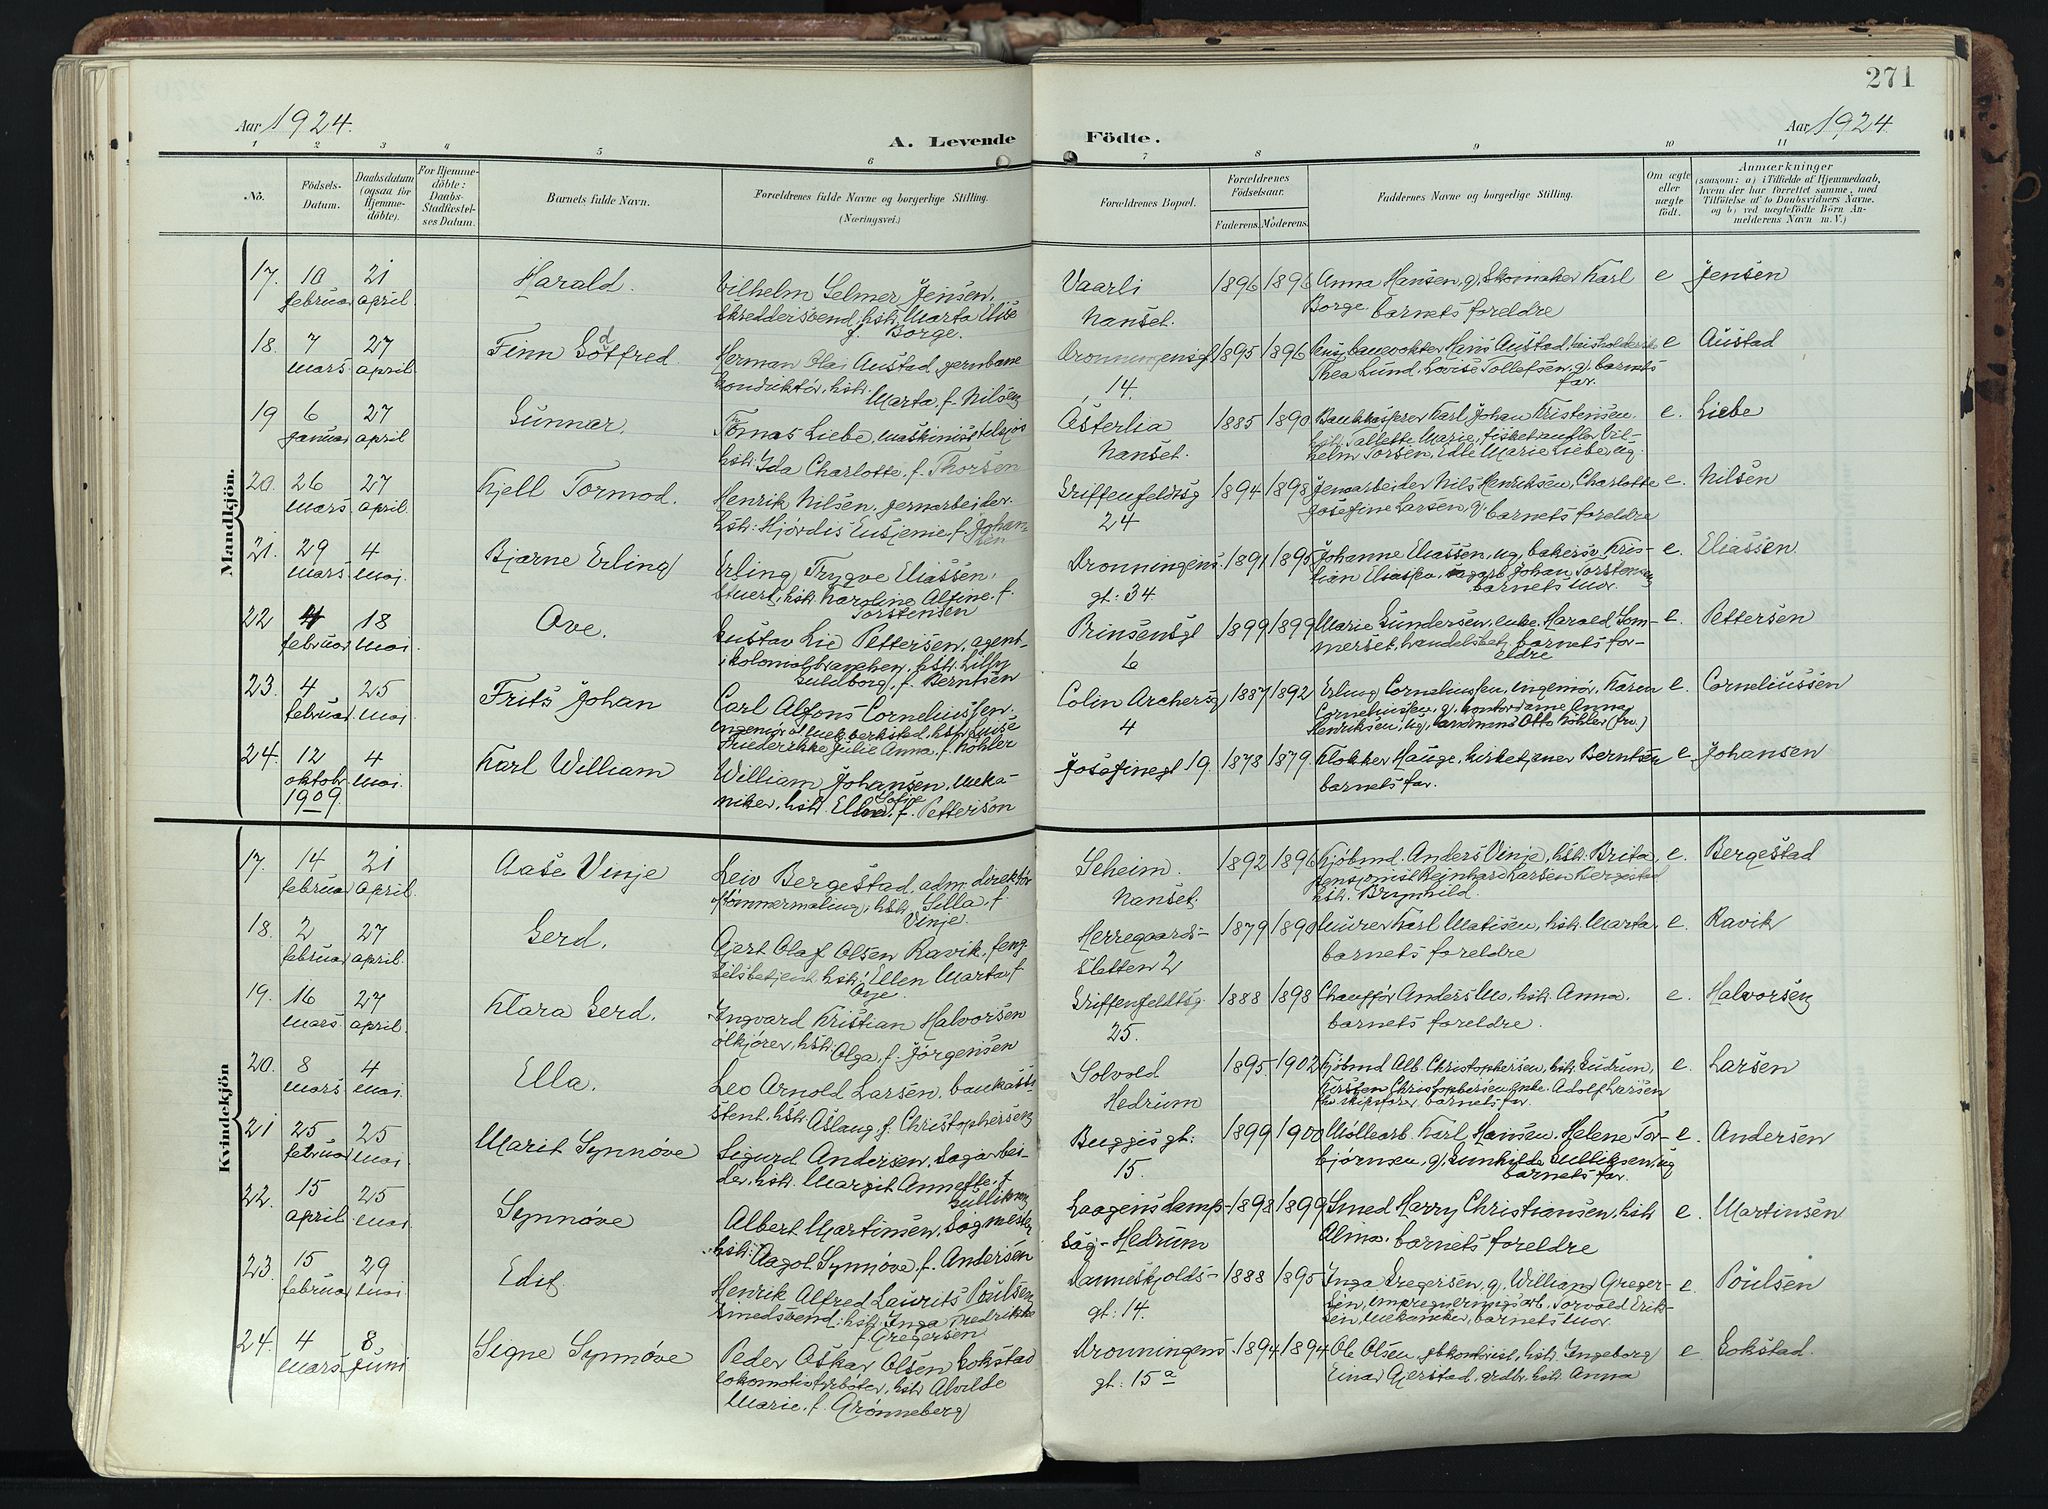 271
Aar 1924.
A. Levende Födte.
Aar 1924.
1 2 3 4 5 6 7 8 9 10 11
No.
Födsels-Datum.
Daabsdatum (ogsaa for Hjemme-döbte).
For Hjemme-döbte: Daabs-Stadfæstel-ses Datum.
Barnets fulde Navn.
Forældrenes fulde Navne og borgerlige Stilling.
(Næringsvei.)
Forældrenes Bopæl.
Forældrenes Födselsaar.
Faderens. Moderens.
Faddernes Navne og borgerlige Stilling.
Om ægte eller uægte födt.
Anmærkninger
(saasom: a) i Tilfælde af Hjemmedaab,
hvem der har forrettet samme, med
Tilföielse af to Daabsvidners Navne,
og b) ved uægtefödte Börn An-
melderens Navn m. V.)
Mandkjön.
17. 10 februar 21 april Harald.
Vilhelm Selmer Jensen,
skreddersvend, hstr. Marta Elise
f. Borge.
Vaarli
Nanset.
1896 1896
Anna Hansen, g, Skomaker Karl
Borge barnets foreldre
e Jensen
18. 7 mars 27 april Finn Gottfred.
Herman Austad jernbane
konduktör, hstr.
Marta f. Nilsen
Dronningensgt
14.
1895 1896
banevokter Hans Austad,
Thea Lund, Lovise Tollefsen, g, barnets
far.
e Austad
19 6 januar 27 april Gunnar.
Tomas Liebe, maskinist
hstr. Ida Charlotte, f. Thorsen
Österlia
Nanset.
1885 1890
Bankkasserer Karl Johan Kristensen.
hstr. Marie,
helm Torsen, Edle Marie Liebe, ug.
e. Liebe
20. 26 mars. 27 april. Kjell Tormod.
Henrik Nilsen, jernarbeider.
hstr. Hjördis Eusjenie f. Johan-
sen
Griffenfeldtsg
24
1894 1898
Jernarbeider Nils Henriksen, Charlotte
Josefine Larsen, g, barnets foreldre
e. Nilsen
21. 29 mars 4 mai Bjarne Erling
Erling Trygve Eliassen,
stuert, hstr. Karoline Alfine f.
Torstensen
Dronningens
gt: 34.
1891 1895
Johanne Eliassen, ug, bakersv Kris-
tian Eliassen, Johan Torstensen
barnets mor.
e. Eliassen
22 4 februar 18 mai. Ove.
Gustav Lie Pettersen, agent
i kolonialbranchen, hstr. Lilly
Guldborg, f. Berntsen
Prinsensgt
6
1899 1899
Marie Gundersen, enke, Harald Som-
merset, handelsbetj, barnets for-
eldre
e Pettersen
23. 4 februar 25 mai. Frits Johan
Carl Alfons Corneliussen.
ingeniör v/ mek. verksted, hstr. Luise
Friederikke Julie Anna, f. Köhler
Colin Archersg
4
1887 1892
Erling Corneliussen, ingeniör, Karen
Corneliussen, g, kontordame Anna
Henriksen, ug, Otto Köhler
e. Corneliussen
24. 12 oktobr 1909. 4 mai. Karl William
William Johansen, meka-
niker, hstr. Ellen Sofie f. Petterson
Josefinegt 19.
1878 1879.
Klokker Hauge, kirketjener Berntsen
barnets far.
e. Johansen
Kvindekjön
17. 14 februar 21 april Aase Vinje
Leiv Bergestad, adm. direktör
v/ tömmermaaling, hstr. Silla, f.
Vinje.
Seheim.
Nanset.
1892 1896
Kjöbmd. Anders Vinje, hstr. Brita,
pensjonist Reinhard Larsen Bergestad
hstr. Brynhild.
e. Bergestad
18. 2 februar 27 april. Gerd.
Gjert Olaf Olsen Ravik, feng-
selsbetjent, hstr. Ellen Marta, f.
Oye.
Herregaards-
sletten 2
1879 1890
Murer Karl Matisen, hstr. Marta,
barnets foreldre
e. Ravik
19. 16 mars. 27 april. Klara Gerd.
Ingvard Kristian Halvorsen
ölkjörer, hstr. Olga, f. Jörgensen
Griffenfeldtsg.
25.
1888 1898
Chaufför Anders Mo, hstr. Anna.
barnets foreldre.
e. Halvorsen
20. 8 mars 4 mai. Ella.
Leo Arnold Larsen, bankassi-
stent. hstr. Aslaug, f. Christophersen
Solvold
Hedrum
1895. 1902
Kjöbmd Alb. Christophersen, hstr. Gudrun,
Kirsten Christophersen enke. Adolf Larsen
barnets far.
e. Larsen
21 25 februar 25 mai. Marit Synnöve
Sigurd Andersen, Sagarbei-
der, hstr. Margit Annette, f.
Gulliksen
Buggisgt.
15.
1899 1900
Möllearb. Karl Hansen, Helene Tor-
björnsen, g, Gunhilde Gulliksen, ug
barnets far.
e. Andersen
22. 15 april 25 mai Synnöve
Albert Martinsen, Sagmester,
hstr. Aagot Synnöve, f. Andersen
Laagens damp-
sag - Hedrum
1898 1899
Smed Harry Christiansen, hstr
Alma, barnets foreldre
e. Martinsen
23. 15 februar 29 mai. Edit.
Henrik Alfred Laurits Poulsen
smedsvend, hstr. Inga Fredrikke
f. Gregersen
Danneskjolds-
gt: 14.
1888 1895
Inga Gregersen, g, William Greger-
sen, impregneringsarb. Torvald Erik-
sen, mekaniker, barnets mor.
e Poulsen
24. 4 mars 8 juni Signe Synnöve
Peder Oskar Olsen Gokstad
lokomotivfyrböter, hstr. Alvilde
Marie, f. Grönneberg
Dronningens
gt: 15 a
1894 1894
Ole Olsen, hstr. Ingeborg
Einar Gjerstad, grdbr, hstr. Anna
e Gokstad.